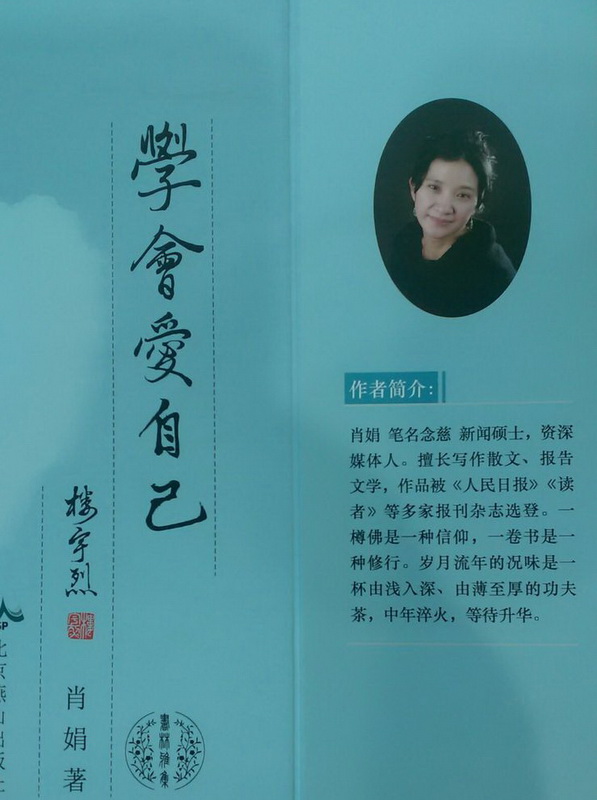 學會愛自己
楼宇烈
肖娟 著
書林雅集
SP
北京燕山出版社
作者简介：
肖娟 笔名念慈 新闻硕士，资深
媒体人。擅长写作散文、报告
文学，作品被《人民日报》《读
者》等多家报刊杂志选登。一
樽佛是一种信仰，一卷书是一
种修行。岁月流年的况味是一
杯由浅入深、由薄至厚的功夫
茶，中年淬火，等待升华。